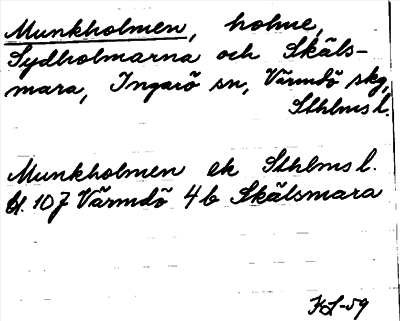 Munkholmen, holme,
Sydholmarna och Skäls-
mara, Ingarö sn, Värmdö skg,
Sthlms l.
Munkholmen ek Sthlms l.
bl. 107 Värmdö 4b Skälsmara
HS-59